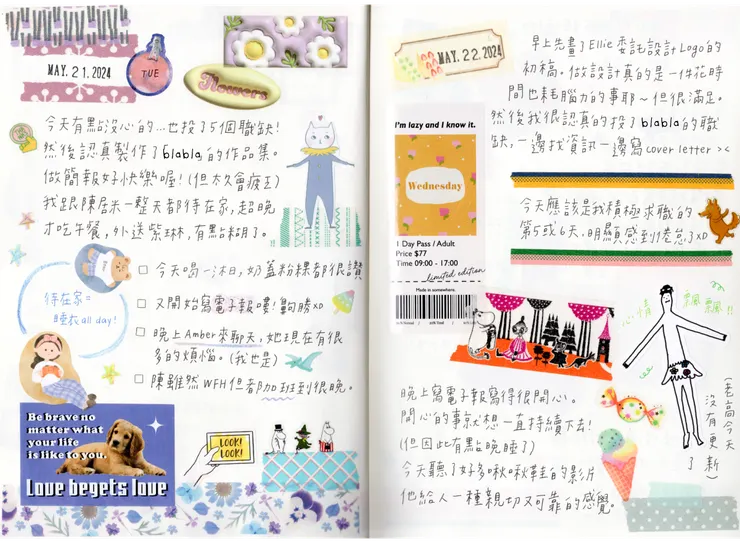 MAY. 21. 2024
TUE
Flowers
今天有點沒心的…也投了5個職缺!
然後認真製作了blabla的作品集。
做簡報好快樂喔!(但太久會疲乏)
我跟陳居米一整天都待在家,超晚
才吃午餐,外送紫琳,有點糊了。
待在家=
睡衣all day!
今天喝一沐日,奶蓋粉粿都很讚
又開始寫電子報嘍!夠勝XD
晚上Amber來聊天,她現在有很
多的煩惱。(我也是)
陳雖然WFH但都加班到很晚。
Be brave no
matter what
your life
is like to you.
Love begets love
LOOK!
LOOK!
MAY. 22. 2024
早上先畫了Ellie委託設計Logo的
初稿。做設計真的是一件花時
間也耗腦力的事耶~但很滿足。
然後我很認真的投了blabla的職
缺,一邊找資訊一邊寫cover letter ><
I'm lazy and I know it.
Wednesday
1 Day Pass / Adult
Price $77
Time 09:00 - 17:00
limited edition
Made in somewhere.
今天應該是我積極求職的
第5或6天,明顯感到倦怠了XD
心情 飄飄!!
晚上寫電子報寫得很開心。
開心的事就想一直持續下去!
(但因此有點晚睡了)
今天聽了好多啾啾鞋的影片
他給人一種親切又可靠的感覺。
(老高今天
沒有更新
了)